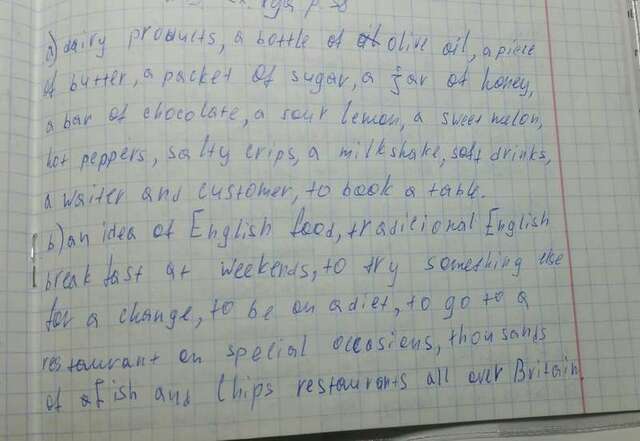 p. 58
a) dairy products, a bottle of olive oil, a piece
of butter, a packet of sugar, a jar of honey,
a bar of chocolate, a sour lemon, a sweet melon,
hot peppers, salty crips, a milkshake, soft drinks,
a waiter and customer, to book a table.
b) an idea of English food, tradicional English
break fast at weekends, to try something else
for a change, to be on a diet, to go to a
restaurant on spelial occasiens, thousands
of fish and Chips restaurants all over Britain